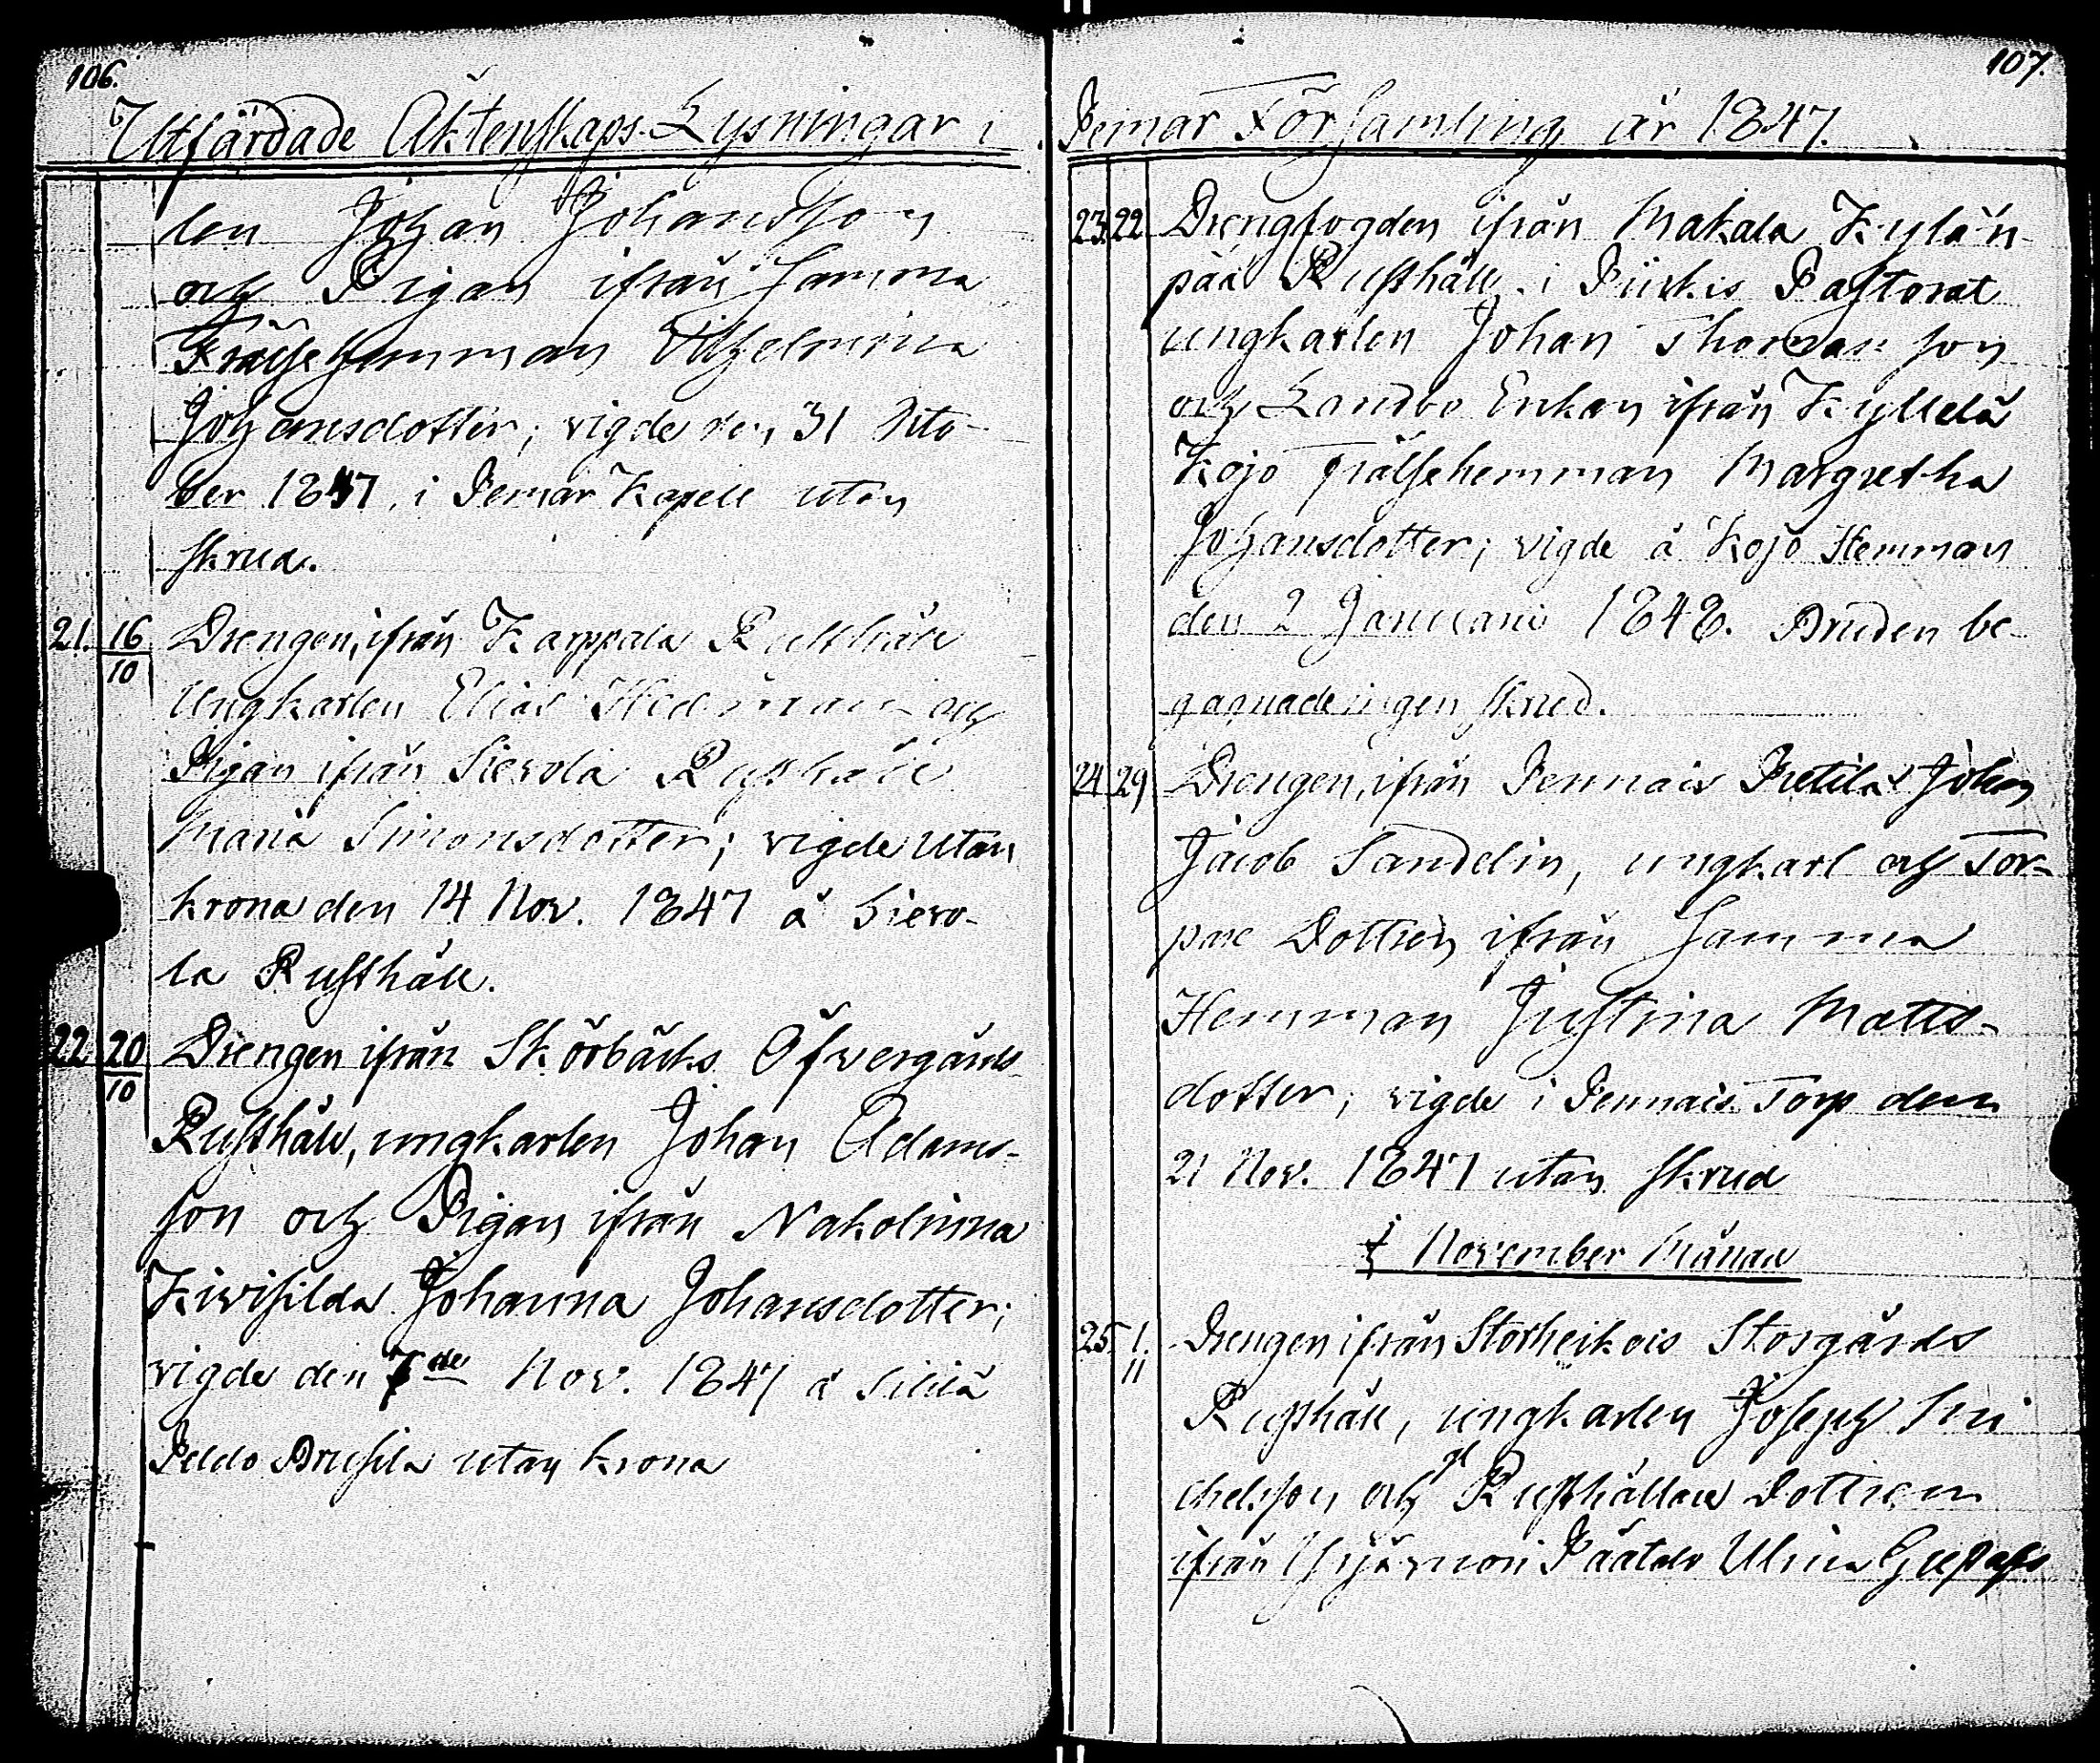 106.
Utfärdade Äktenskaps-Lysningar i
len Johan Johansson
och Pigan ifrån samma
Frälsehemman Vilhelmina
Johansdotter; vigde den 31 Octo-
ber 1847, i Pemar Kapell utan
skrud.
21. 16/10 Drengen, ifrån Karppala Rusthåll
Ungkarlen Elias och
Pigan ifrån Sierola Rusthåll
Maria Simonsdotter; vigde utan
krona den 14 Nov. 1847 å Siero-
la Rusthåll.
22. 20/10 Drengen ifrån Skörbäcks Öfvergårds
Rusthåll, ungkarlen Johan Adams-
son och Pigan ifrån Nakolinna
Johanna Johansdotter;
vigde den 7de Nov. 1847 å
utan krona
107.
Pemar Församling år 1847.
23. 22 Drengfogden ifrån Makala Kylän-
pää Rusthåll i Piikis Pastorat
ungkarlen Johan Thomasson
och Landbo Enkan ifrån Kyllelä
Kojo Frälsehemman Margretha
Johansdotter; vigde å Kojo Hemman
den 2 Januari 1848. Bruden be-
gagnade ingen skrud.
24 29 Drengen, ifrån Pennais Pretila Johan
Jacob Sandelin, ungkarl och Tor-
pare Dottren ifrån samma
Hemman Justina Matts-
dotter; vigde i Pennais Torp den
21 Nov. 1847 utan skrud
i November Månad
25. 1./11 Drengen ifrån Storheikois Storgårds
Rusthåll, ungkarlen Joseph Mi
chelsson, och Rusthållare Dottren
ifrån Ulrica Gustafs